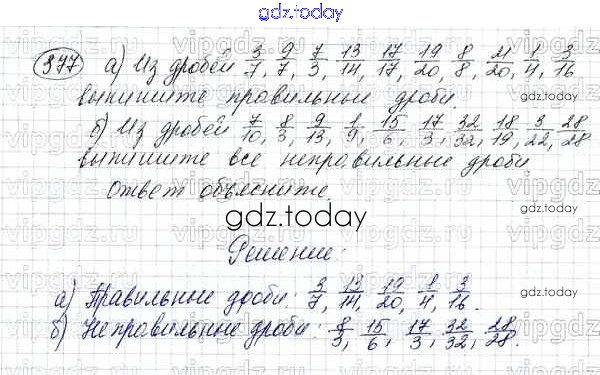 gdz.today
377 а) Из дробей 3/7, 9/7, 7/3, 13/14, 17/17, 19/20, 8/8, 21/20, 1/4, 3/16
выпишите правильные дроби.
б) Из дробей 7/10, 8/3, 9/13, 1/9, 15/6, 17/3, 32/32, 18/19, 3/22, 28/28
выпишите все неправильные дроби
Ответ объясните.
gdz.today
gdz.today
Решение:
а) Правильные дроби: 3/7, 13/14, 19/20, 1/4, 3/16.
gdz.today
б) Неправильные дроби: 8/3, 15/6, 17/3, 32/32, 28/28.
gdz.today